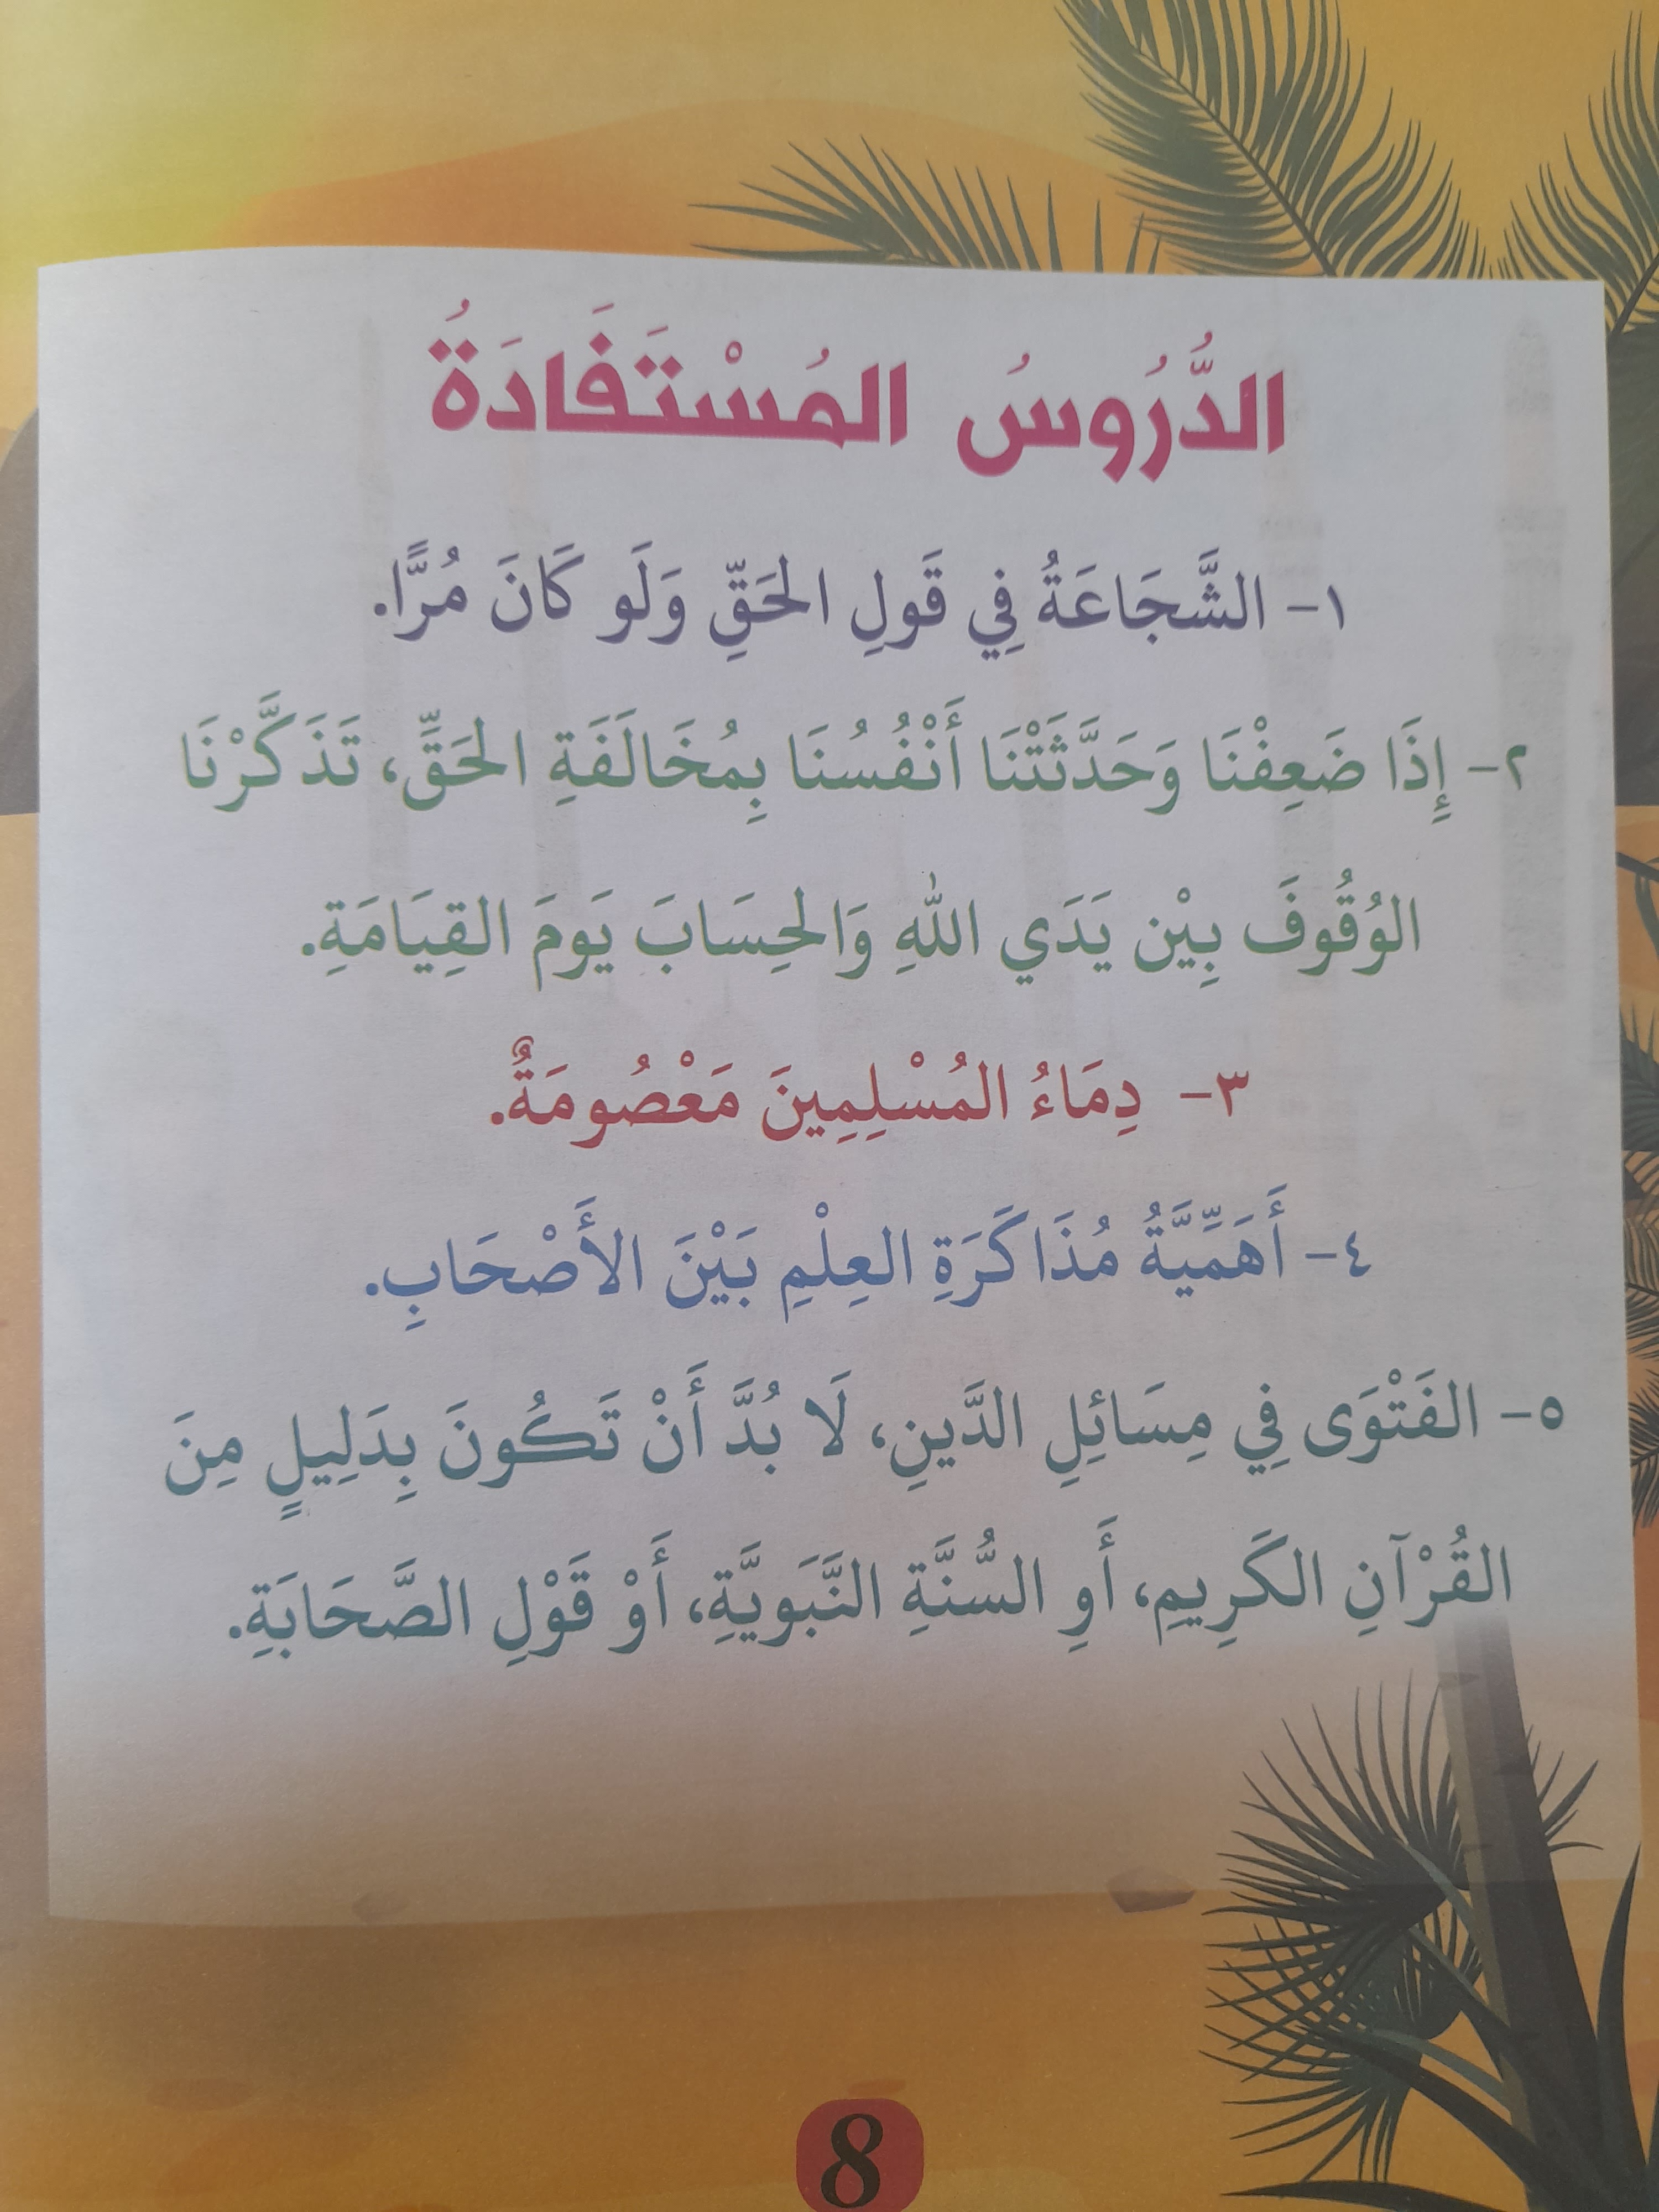 الدُّرُوسُ المُسْتَفَادَةُ
١- الشَّجَاعَةُ فِي قَولِ الحَقِّ وَلَو كَانَ مُرًّا.
٢- إِذَا ضَعِفْنَا وَحَدَّثَتْنَا أَنْفُسُنَا بِمُخَالَفَةِ الحَقِّ، تَذَكَّرْنَا
الوُقُوفَ بِيْن يَدَي اللهِ وَالحِسَابَ يَومَ القِيَامَةِ.
٣- دِمَاءُ المُسْلِمِينَ مَعْصُومَةٌ.
٤- أَهَمِّيَّةُ مُذَاكَرَةِ العِلْمِ بَيْنَ الأَصْحَابِ.
٥- الفَتْوَى فِي مِسَائِلِ الدَّينِ، لَا بُدَّ أَنْ تَكُونَ بِدَلِيلٍ مِنَ
القُرْآنِ الكَرِيمِ، أَوِ السُّنَّةِ النَّبَويَّةِ، أَوْ قَوْلِ الصَّحَابَةِ.
8